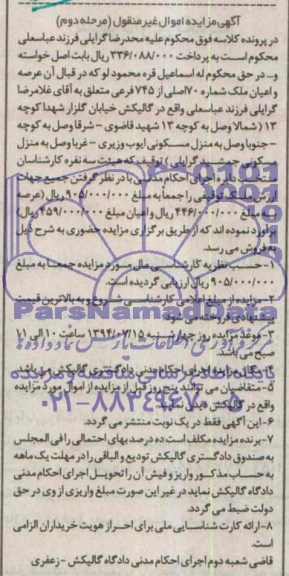 آگهی مزایده اموال غیر منقول (مرحله دوم)
در پرونده کلاسه فوق محکوم علیه محدرضا گرایلی فرزند عباسعلی
محکوم است به پرداخت ۳۳۶/۰۸۸/۰۰۰ ریال بابت اصل خواسته
و... در حق محکوم له اسماعیل قره محمدلو که در قبال آن عرصه
و اعیان ملک شماره ۷۰ اصلی از ۷۴۵ فرعی متعلق به آقای غلامرضا
گرایلی فرزند عباسعلی واقع در گالیکش خیابان گلزار شهدا کوچه
۱۳ (شمالا وصل به کوچه ۱۳ شهید قاضوی - شرقا وصل به کوچه
-جنوبا وصل به منزل مسکونی ایوب وزیری - غربا وصل به منزل
مسکونی جمشید گرایلی) توقیف که هیئت سه نفره کارشناسان
منتخب دایره اجرای احکام مدنی با در نظر گرفتن جمیع جهات
ارزش ملک توقیفی را جمعا به مبلغ ۹۰۵/۰۰۰/۰۰۰ ریال (عرصه
به مبلغ ۴۴۶/۰۰۰/۰۰۰ ریال و اعیان مبلغ ۴۵۹/۰۰۰/۰۰۰ ریال)
برآورد نموده اند که از طریق برگزاری مزایده حضوری به شرح ذیل
به فروش می رسد.
۱- حسب نظریه کارشناسی مال مورد مزایده جمعا به مبلغ
۹۰۵/۰۰۰/۰۰۰ ریال ارزیابی گردیده است.
۲- مزایده از مبلغ اعلامی کارشناسی شروع و به بالاترین قیمت
پیشنهادی فروخته می شود.
۳- موعد مزایده روز چهارشنبه ۱۳۹۴/۰۷/۱۵ ساعت ۱۰ الی ۱۱
صبح می باشد.
۴- مکان مزایده اجرای احکام مدنی دادگستری گالیکش می باشد.
۵- متقاضیان می توانند پنج روز قبل از مزایده از اموال مورد مزایده
واقع در گالیکش دیدن نمایند.
۶- این آگهی فقط در یک نوبت منتشر می گردد.
۷- برنده مزایده مکلف است ده درصد بهای احتمالی را فی المجلس
به صندوق دادگستری گالیکش تودیع و الباقی را در مهلت یک ماهه
به حساب مذکور واریز و فیش آن را تحویل اجرای احکام مدنی
دادگاه گالیکش نماید در غیر این صورت مبلغ واریزی از وی در حق
دولت ضبط می گردد.
۸- ارائه کارت شناسایی ملی برای احراز هویت خریداران الزامی
است.
قاضی شعبه دوم اجرای احکام مدنی دادگاه گالیکش - زعفری
ParsNamadData
۰۲۱-۸۸۳۴۹۶۷۰-۵